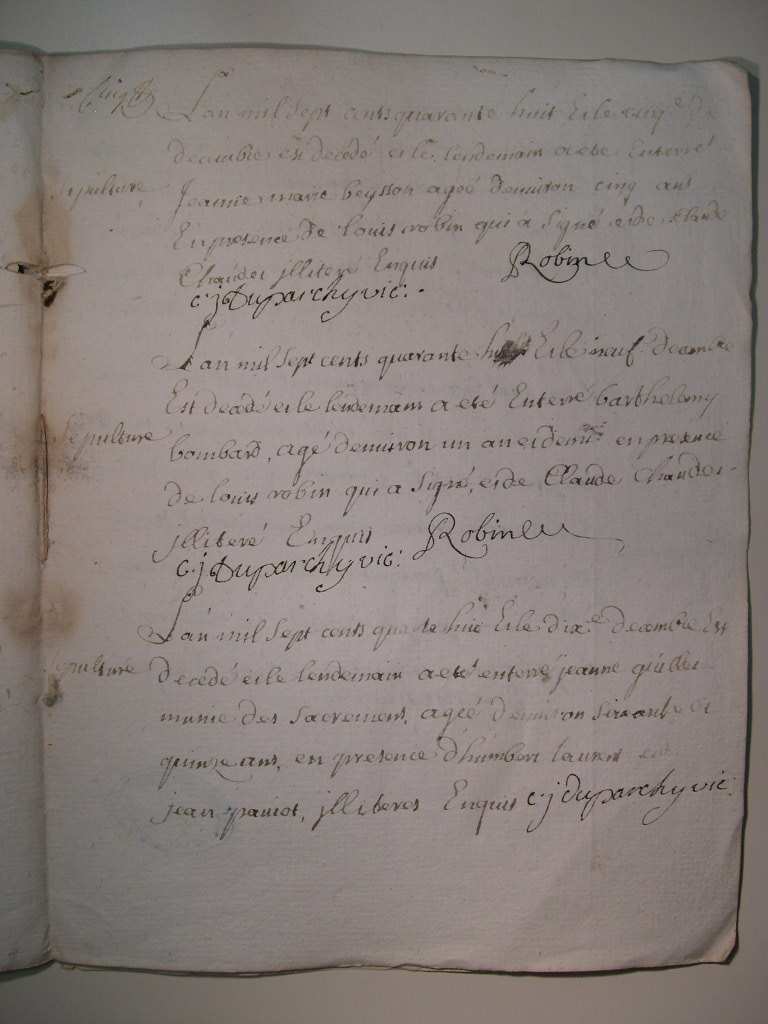 L'an mil sept cents quarante huit et le cinq.e de
decembre est decédé et le lendemain a eté Enterré
Sepulture
Jeanne marie beysson ageé d'environ cinq ans
En presence de Louis robin qui a signé et de claude
Chaudet jlliteré Enquis Robin
c.j Duparchy vic:
L'an mil sept cents quarante huit Et le neuf decembre
Est decédé et le lendemain a eté Enterré barthelemy
Sepulture
bombard, agé d'environ un an et demi en presence
de louis robin qui a signé, et de Claude Chaudet
jlliteré Enquis Robin
c.j Duparchy vic:
L'an mil sept cents quarante huit Et le dix.e decembre Est
Sepulture
decédé et le lendemain a eté enterré jeanne
munie des sacremens, ageé d'environ soixante et
quinze ans, en presence d'humbert laurent et
jean paviot, jlliteres Enquis c.j Duparchy vic: